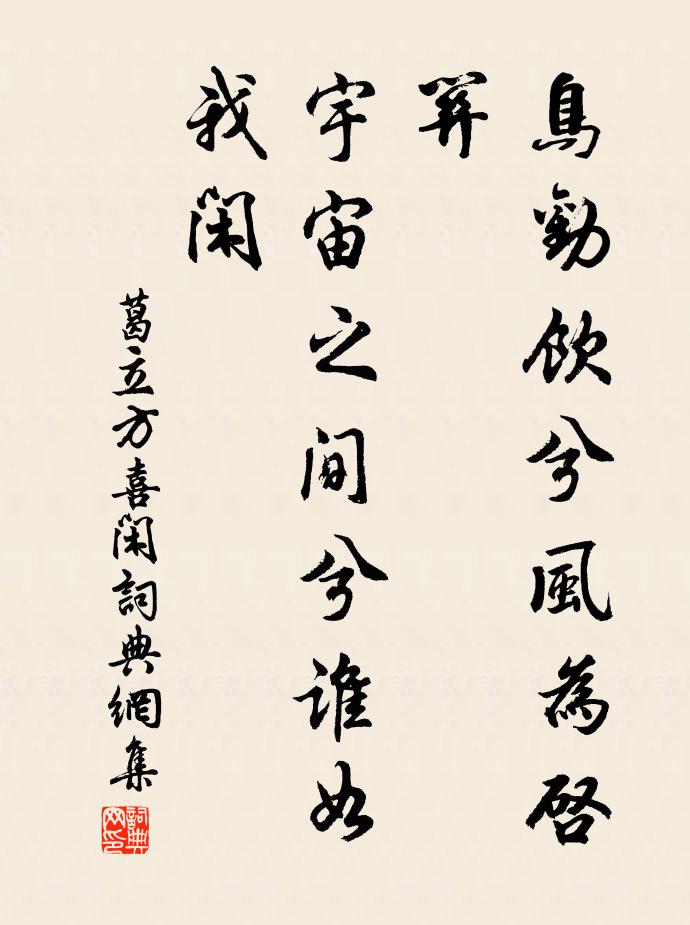 鳥勸飲兮風為啓
關
宇宙之間兮誰如
我閑
葛立方喜閑詞典網集
詞典
网印